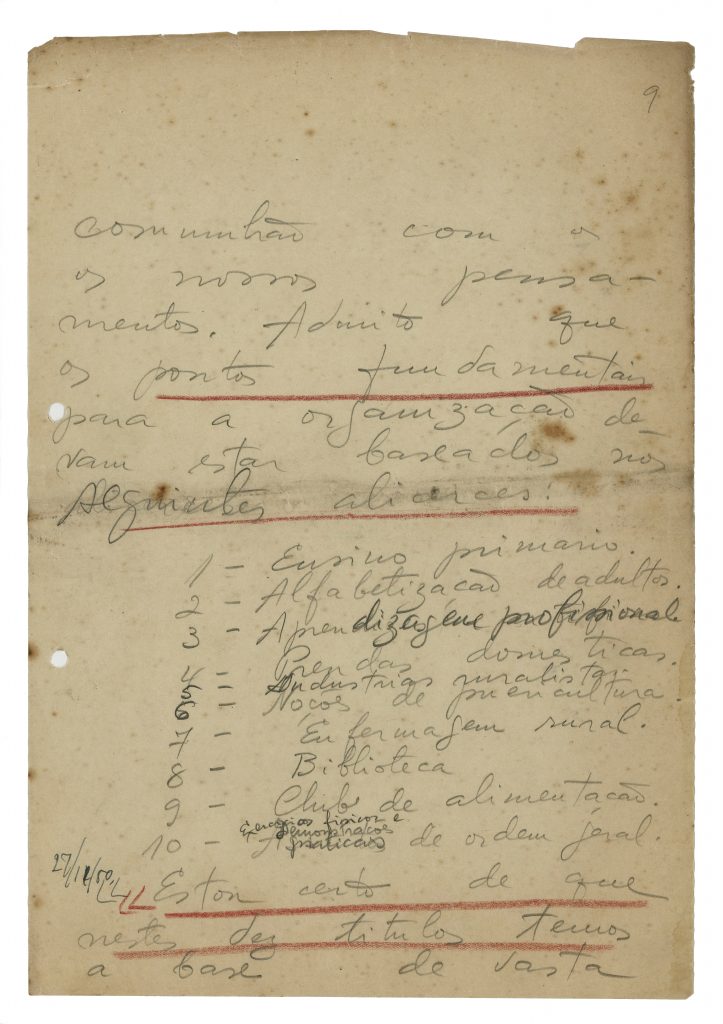 9
comunhão com o
os nossos pensa-
mentos. Admito que
os pontos fundamentais
para a organização de-
vam estar baseados nos
seguintes alicerces:
1 - Ensino primario.
2 - Alfabetização de adultos.
3 - Aprendizagem profissional.
4 - Prendas domesticas.
5 - Industrias ruralistas.
6 - Noções de puericultura.
7 - Enfermagem rural.
8 - Biblioteca
9 - Club de alimentação.
Exercicios fisicos e
demonstrações
10 - praticas de ordem geral.
27/11/50
Estou certo de que
nestes dez titulos temos
a base de vasta